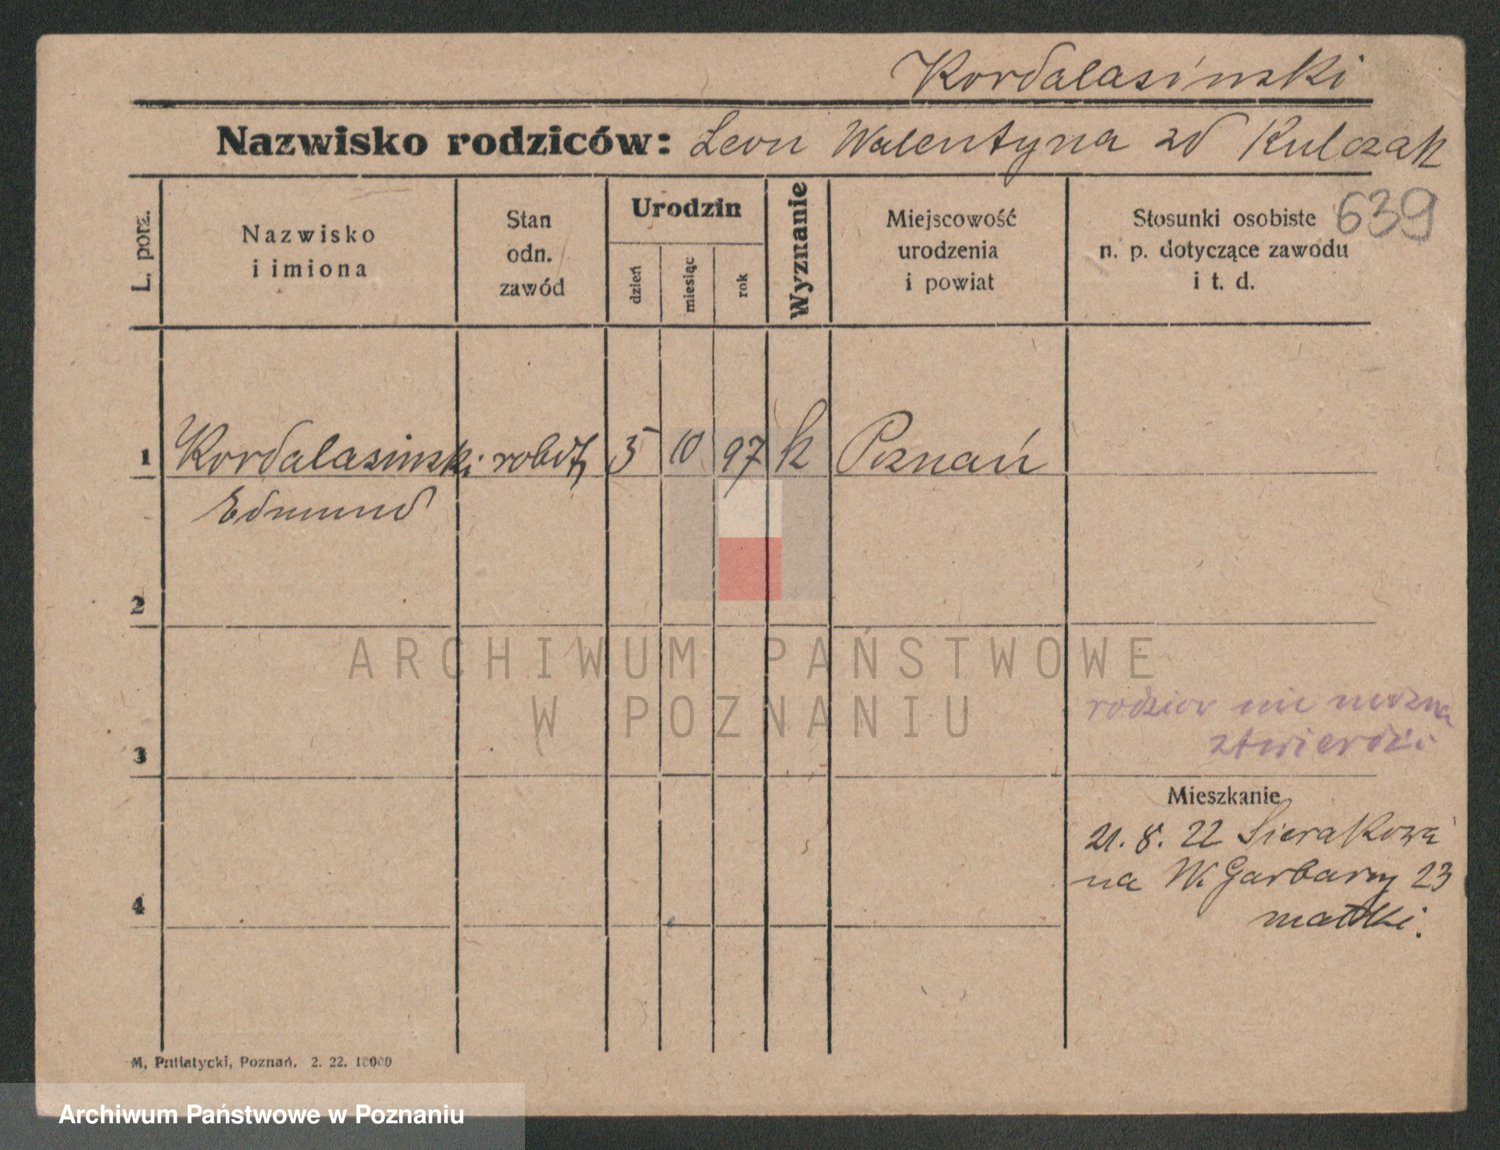 Kordalasinski
Nazwisko rodziców: Leon Walentyna zd Kulczak
639
L. porz.
Nazwisko
i imiona
Stan
odn.
zawód
Urodzin
dzień
miesiąc
rok
Wyznanie
Miejscowość
urodzenia
i powiat
Stosunki osobiste
n. p. dotyczące zawodu
i t. d.
1 Kordalasinski robotz 5 10 97 k Poznań
Edmund
2
ARCHIWUM PAŃSTWOWE
W POZNANIU
rodziców nie można
stwierdzić
3
Mieszkanie
21. 8. 22 Sierakowa
na W. Garbary 23
matki.
4
M. Putiatycki, Poznań. 2. 22. 10000
Archiwum Państwowe w Poznaniu